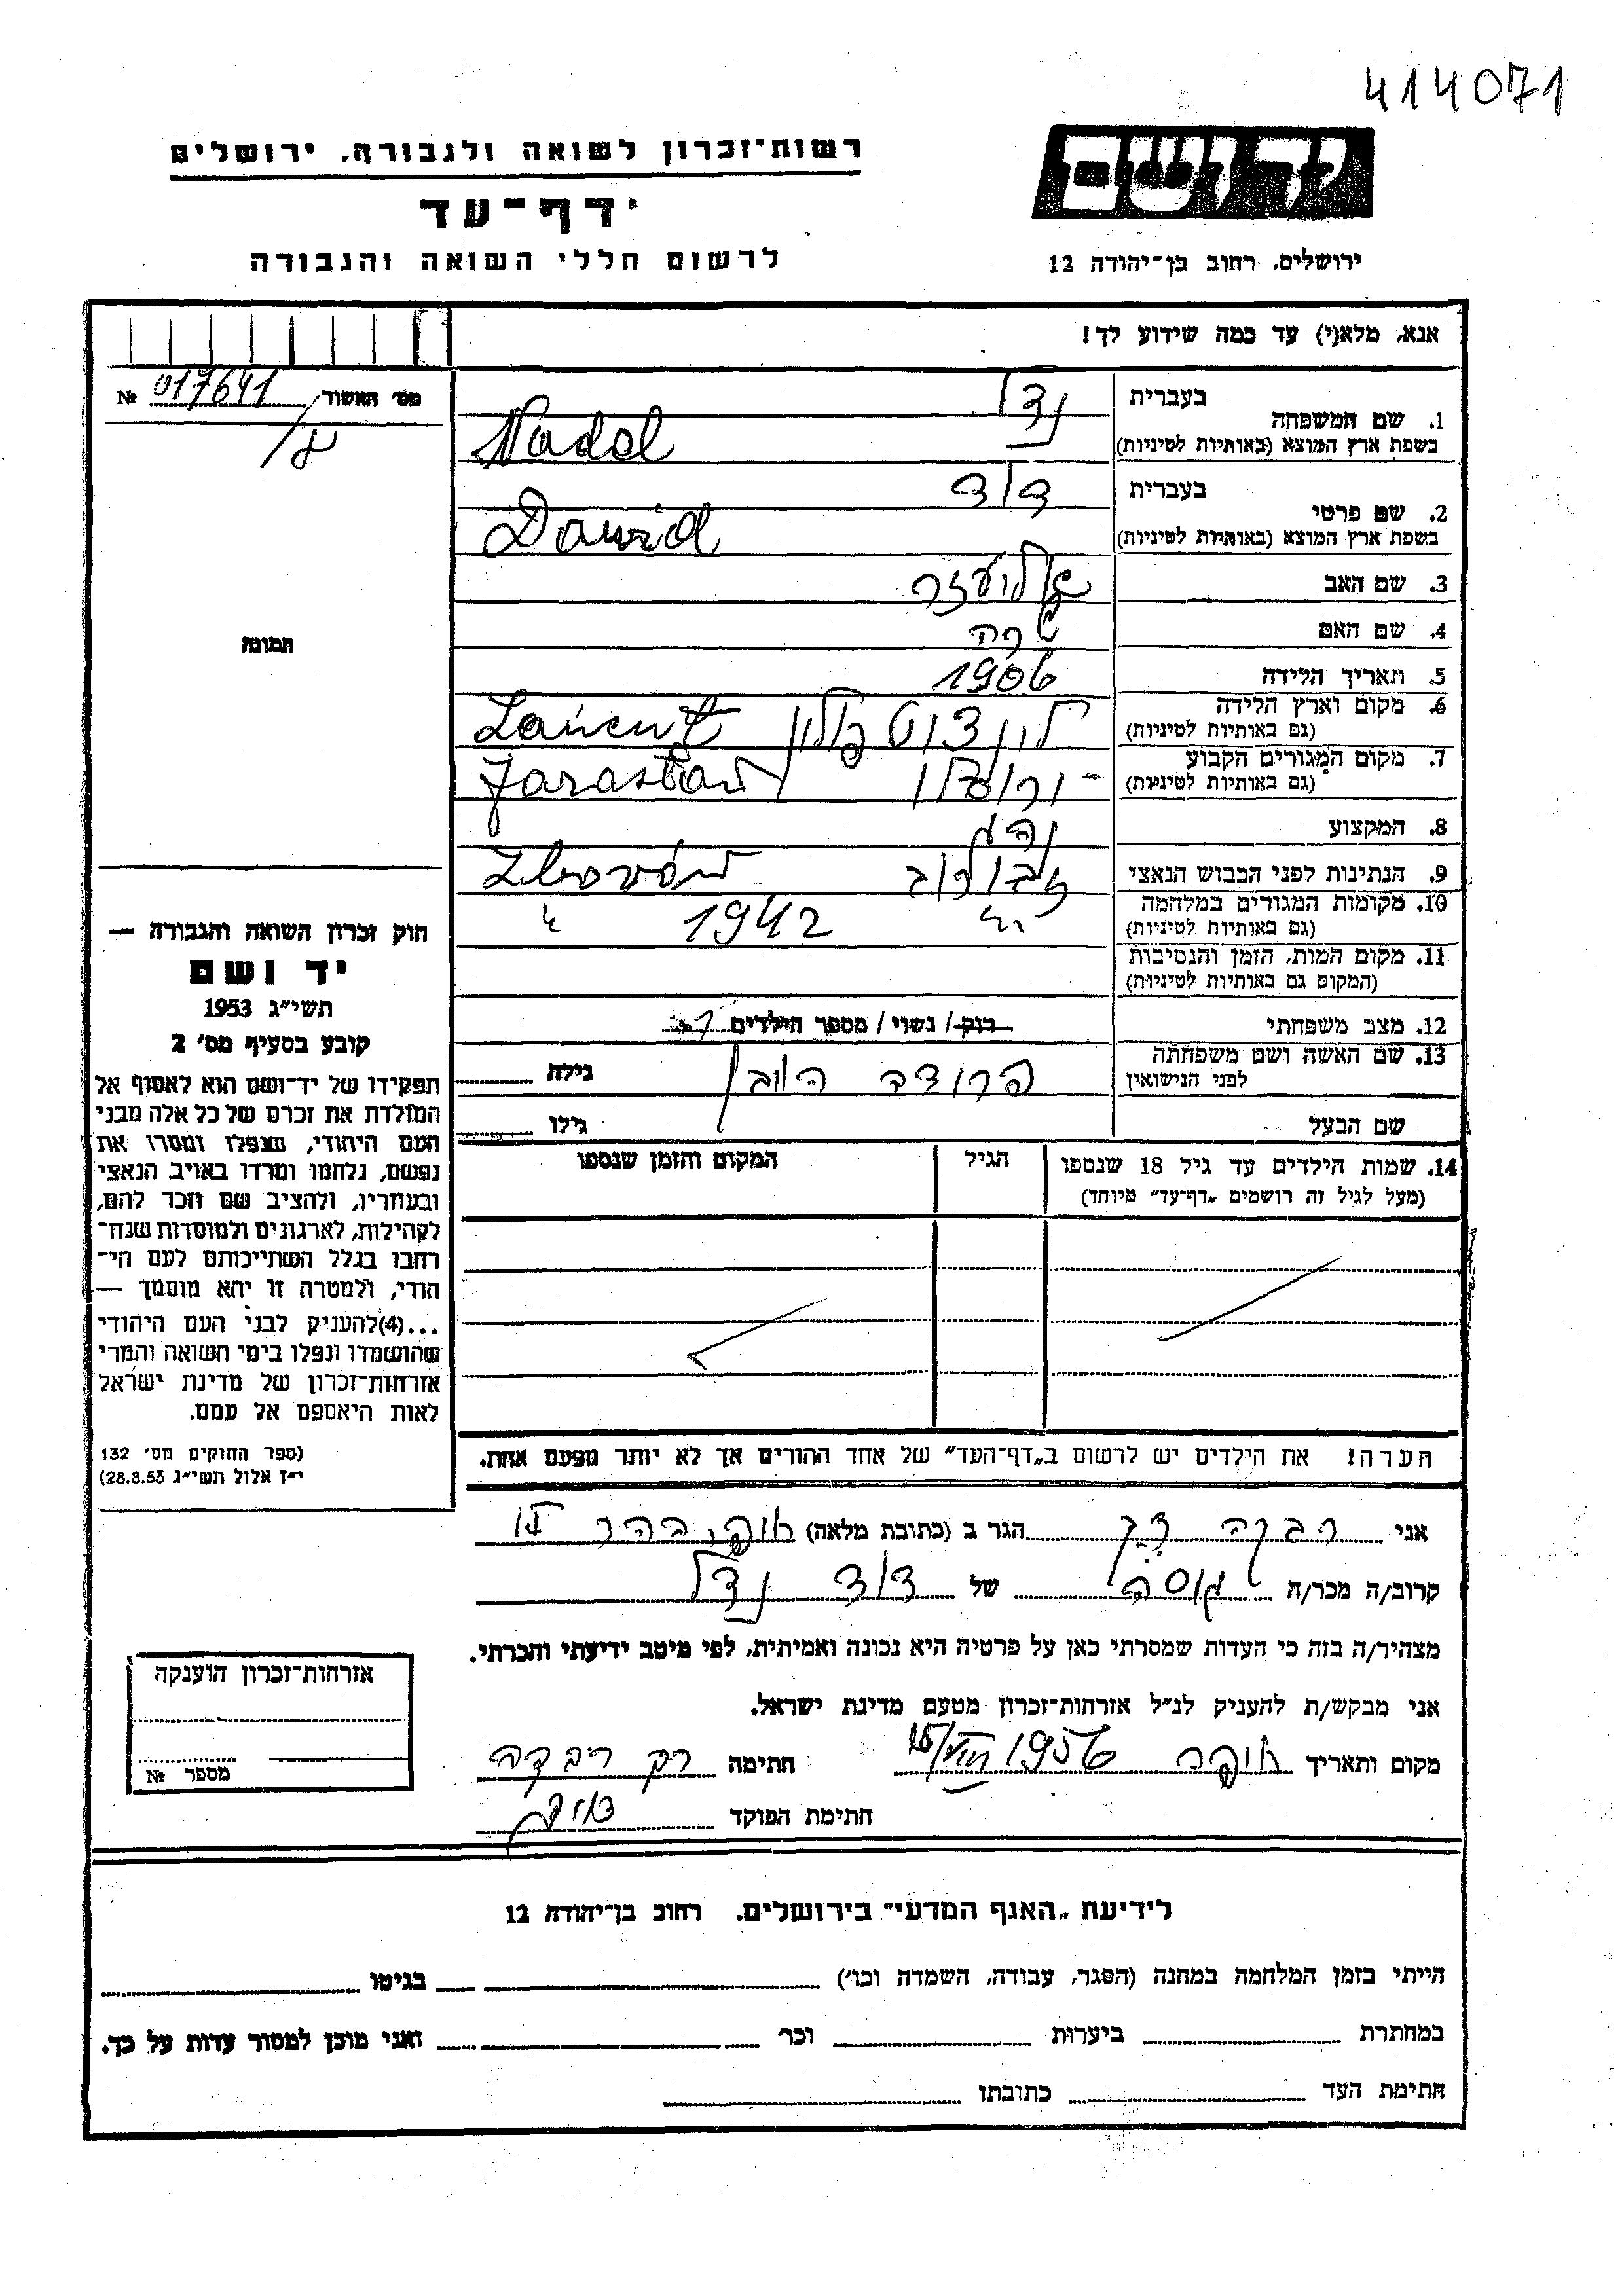 414071
יד ושם
רשות־זכרון לשואה ולגבורה, ירושלים
דף־עד
לרשום חללי השואה והגבורה
ירושלים, רחוב בן־יהודה 12
אנא, מלא(י) עד כמה שידוע לך!
מס׳ האשור 017641 №
1. שם המשפחה
בעברית נדל
בשפת ארץ המוצא (באותיות לטיניות) Nadel
2. שם פרטי
בעברית דוד
בשפת ארץ המוצא (באותיות לטיניות) Dawid
3. שם האב אליעזר
4. שם האם שרה
5. תאריך הלידה 1906
6. מקום וארץ הלידה
(גם באותיות לטיניות) לנצוט פולין Łańcut
7. מקום המגורים הקבוע
(גם באותיות לטיניות) Jarosław
8. המקצוע נהג
9. הנתינות לפני הכבוש הנאצי
10. מקומות המגורים במלחמה
(גם באותיות לטיניות) 1942
11. מקום המות, הזמן והנסיבות
(המקום גם באותיות לטיניות)
12. מצב משפחתי רוק/ נשוי/ מספר הילדים
13. שם האשה ושם משפחתה
לפני הנישואין גילה
שם הבעל גילו
14. שמות הילדים עד גיל 18 שנספו
(מעל לגיל זה רושמים „דף־עד״ מיוחד)
הגיל
המקום והזמן שנספו
הערה! את הילדים יש לרשום ב„דף־העד״ של אחד ההורים אך לא יותר מפעם אחת.
תמונה
חוק זכרון השואה והגבורה —
יד ושם
תשי״ג 1953
קובע בסעיף מס׳ 2
תפקידו של יד־ושם הוא לאסוף אל
המולדת את זכרם של כל אלה מבני
העם היהודי, שנפלו ומסרו את
נפשם, נלחמו ומרדו באויב הנאצי
ובעוזריו, ולהציב שם וזכר להם,
לקהילות, לארגונים ולמוסדות שנח־
רבו בגלל השתייכותם לעם הי־
הודי, ולמטרה זו יהא מוסמך —
...(4)להעניק לבני העם היהודי
שהושמדו ונפלו בימי השואה והמרי
אזרחות־זכרון של מדינת ישראל
לאות היאספם אל עמם.
(ספר החוקים מס׳ 132
י״ז אלול תשי״ג 28.8.53)
אני רבקה רק הגר ב (כתובת מלאה)
קרוב/ה מכר/ה גיסה של דוד נדל
מצהיר/ה בזה כי העדות שמסרתי כאן על פרטיה היא נכונה ואמיתית, לפי מיטב ידיעתי והכרתי.
אני מבקש/ת להעניק לנ״ל אזרחות־זכרון מטעם מדינת ישראל.
מקום ותאריך 1956 חתימה רק רבקה
חתימת הפוקד
אזרחות־זכרון הוענקה
מספר №
לידיעת „האגף המדעי״ בירושלים. רחוב בן־יהודה 12
הייתי בזמן המלחמה במחנה (הסגר, עבודה, השמדה וכו׳) בגיטו
במחתרת ביערות וכו׳ ואני מוכן למסור עדות על כך.
חתימת העד כתובתו